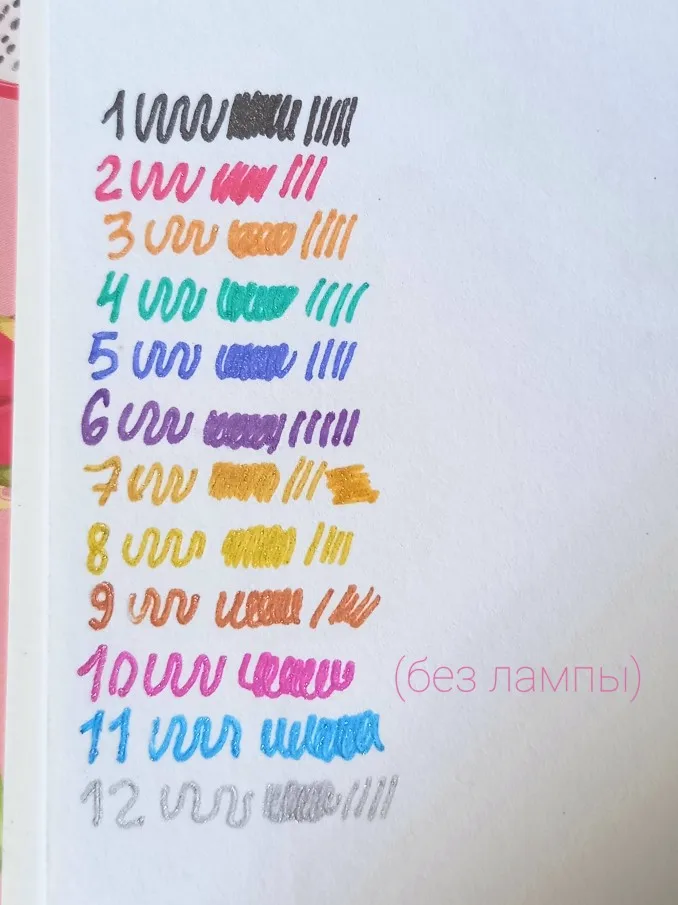 1
2
3
4
5
6
7
8
9
10 (без лампы)
11
12